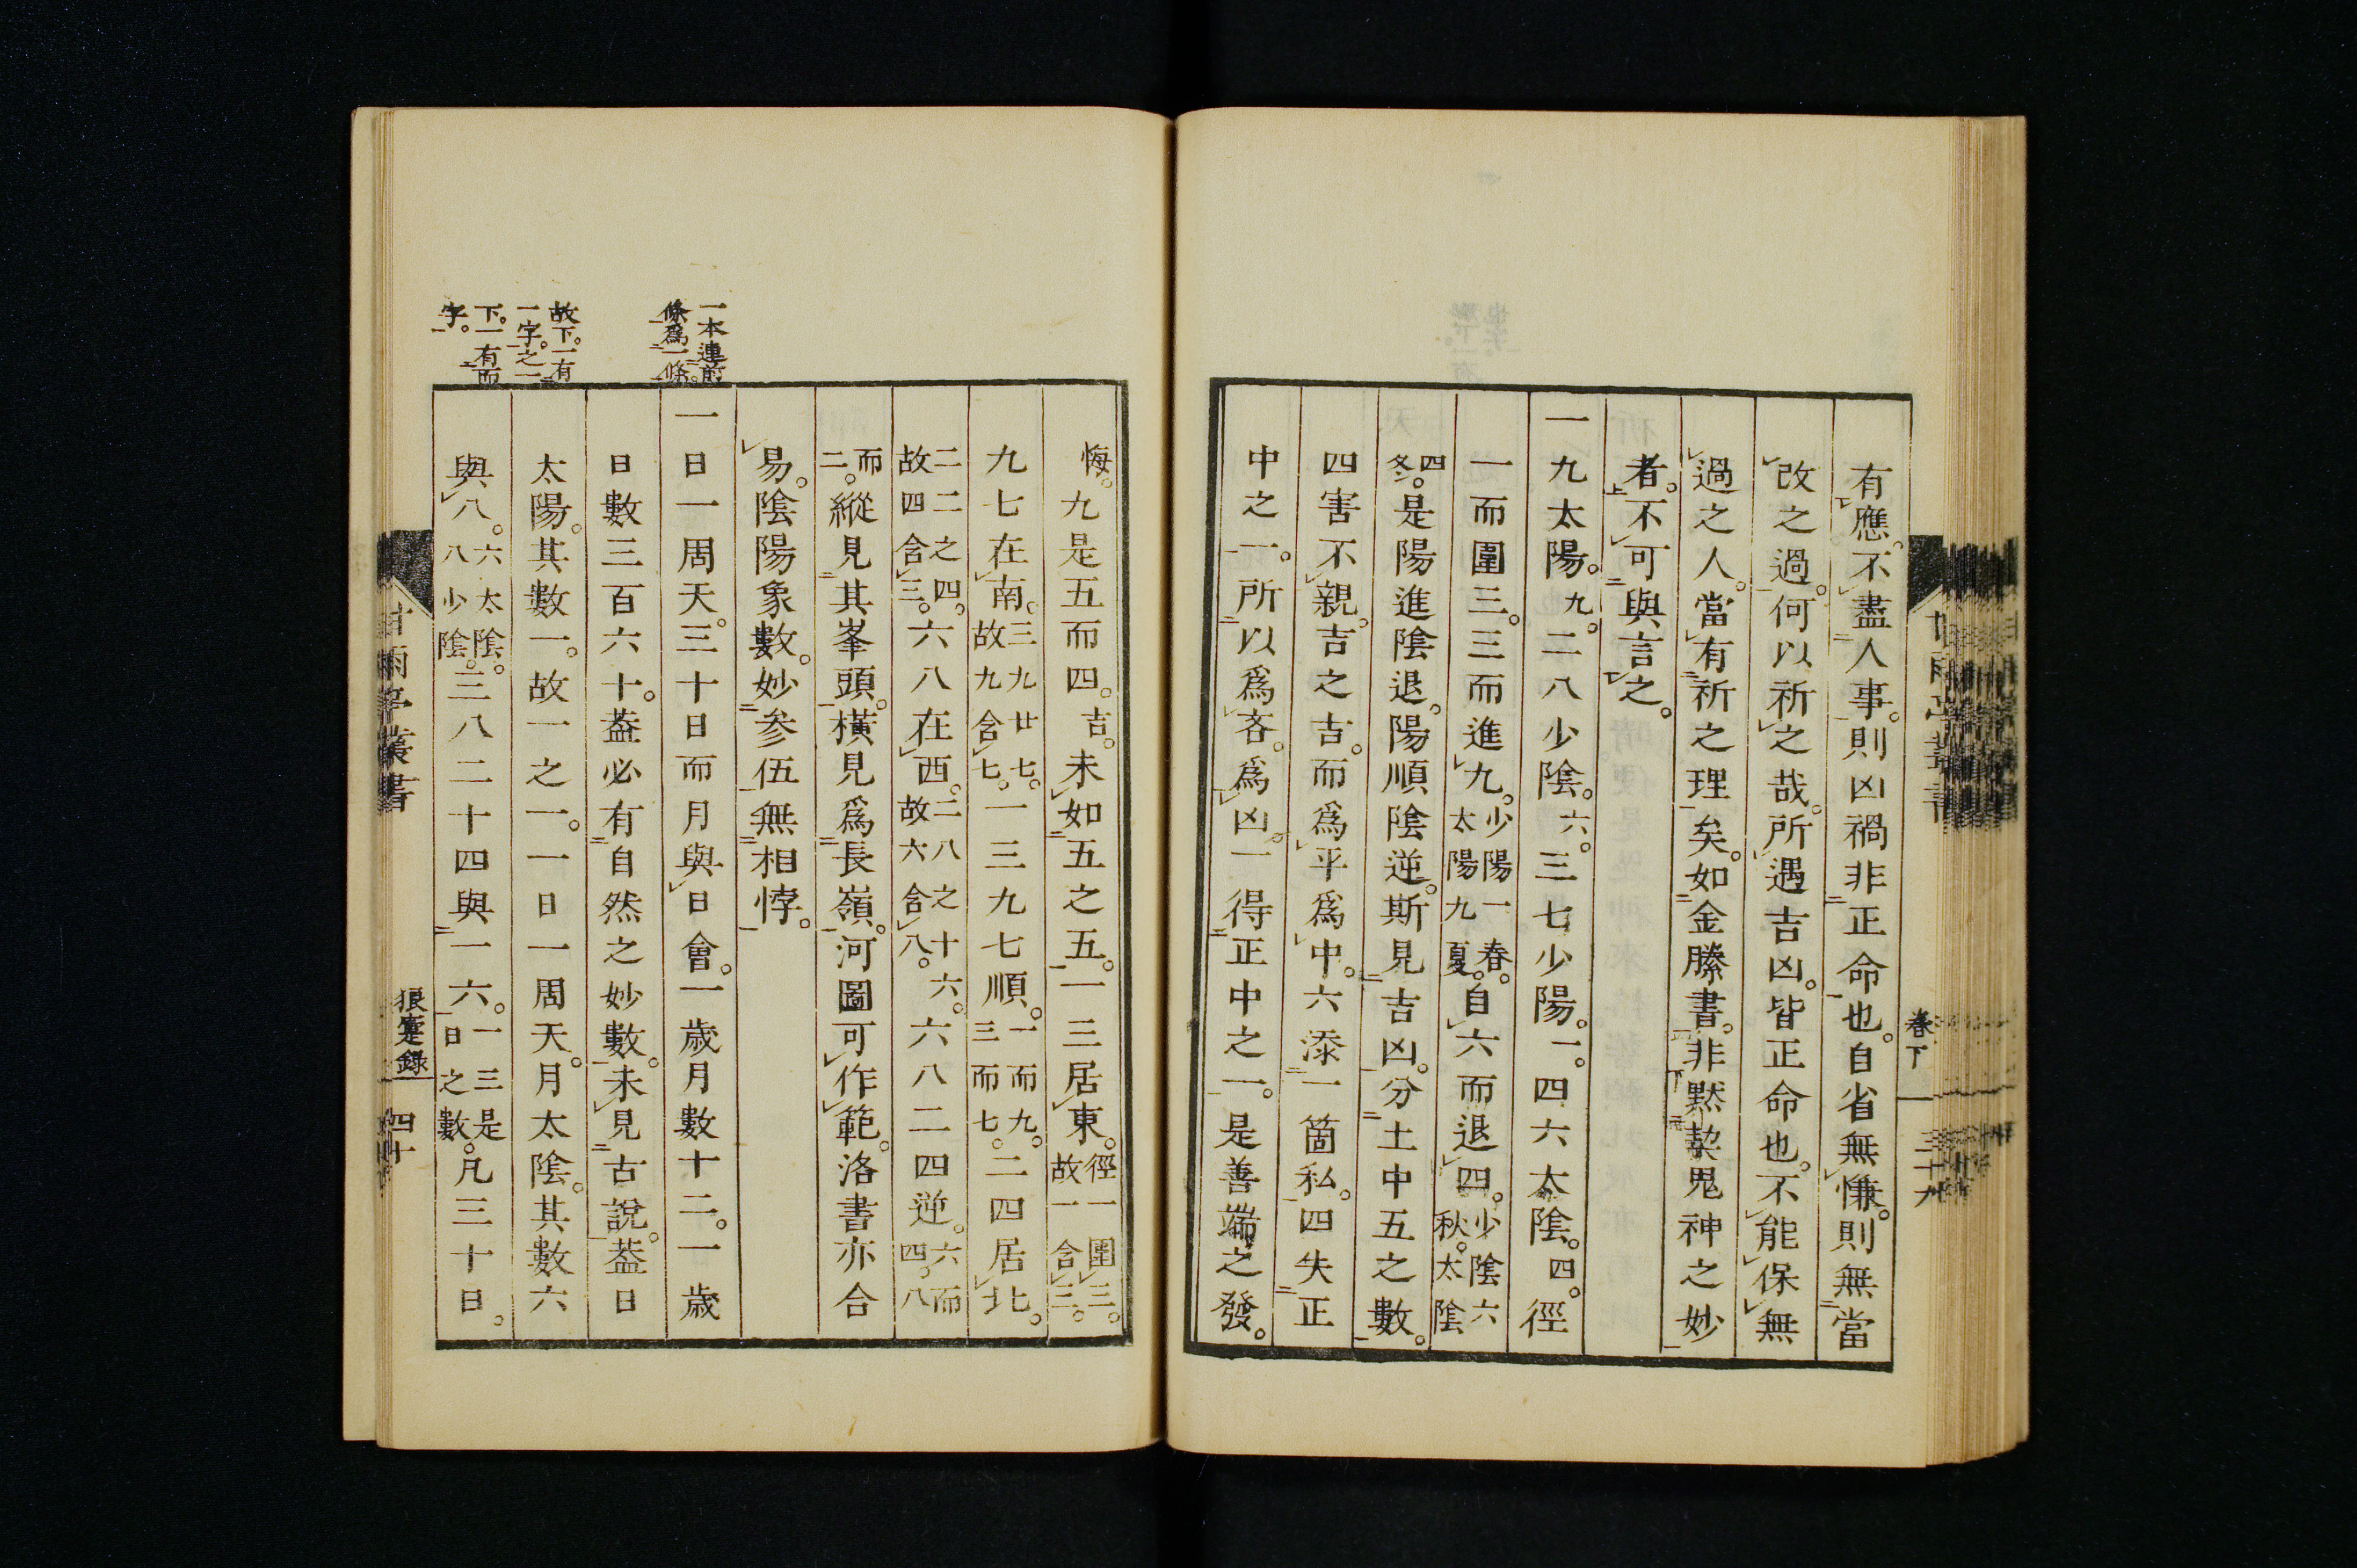 有應。不盡人事。則凶禍非正命也。自省無慊。則無當
改之過。何以祈之哉。所遇吉凶。皆正命也。不能保無
過之人。當有祈之理矣。如金縢書。非黙契鬼神之妙
者。不可與言之。
一九太陽。九。二八少陰。六。三七少陽。一。四六太陰。四。徑
一而圍三。三而進九。少陽一春。太陽九夏。自六而退四。少陰六秋。太陰
四冬。是陽進陰退。陽順陰逆。斯見吉凶。分土中五之數。
四害不親。吉之吉。而爲平爲中。六添一箇私。四失正
中之一。所以爲吝。爲凶。一得正中之一。是善端之發。
卷下
三十九
悔。九是五而四。吉。未如五之五。一三居東。徑一圍三。故一含三。
九七在南。三九廿七。故九含七。一三九七順。一而九。三而七。二四居北。
二二之四。故四含三。六八在西。二八之十六。故六含八。六八二四逆。六而四。八
而二。縱見其峯頭。橫見爲長嶺。河圖可作範。洛書亦合
易。陰陽象數。妙参伍無相悖。
一本連前
條爲一條。
一日一周天。三十日而月與日會。一歳月數十二。一歳
日數三百六十。葢必有自然之妙數。未見古說。葢日
故下。一有
一字。之一
下。一有而
字。
太陽。其數一。故一之一。一日一周天。月太陰。其數六
與八。六太陰。八少陰。三八二十四與一六。一三是日之數。凡三十日。
甘雨亭叢書
狼疐録
四十